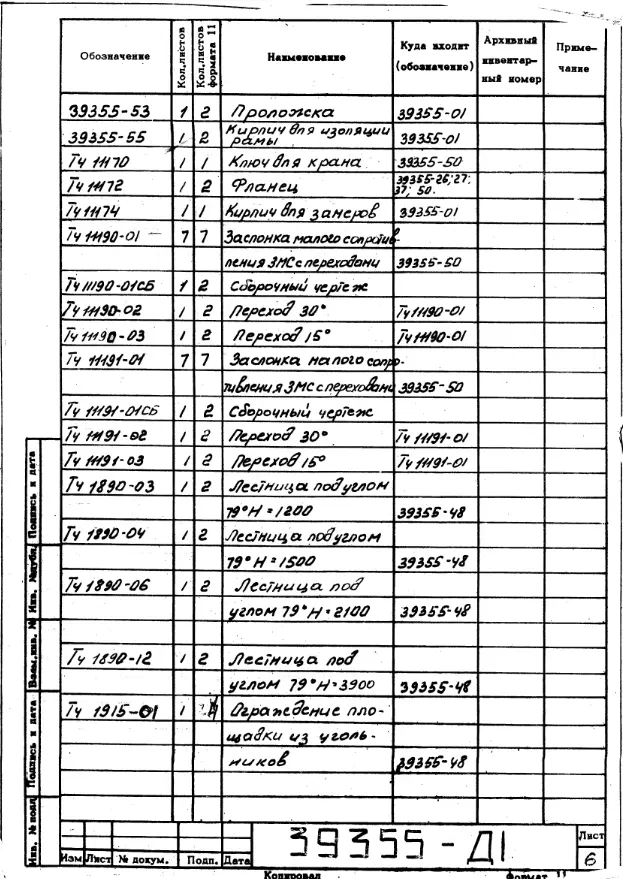 Обозначение Кол.листов Кол.листов формата 11 Наименование Куда входит (обозначение) Архивный инвентарный номер Примечание
39355-53 1 2 Проложска 39355-01
39355-55 1 2 Кирпич для изоляции рамы 39355-01
Тч 11170 1 1 Ключ для крана 39355-50
Тч 11172 1 2 Фланец 39355-26; 27; 37; 50.
Тч 11174 1 1 Кирпич для замеров 39355-01
Тч 11190-01 7 7 Заслонка малого сопротив-
ления ЗМС с переходами 39355-50
Тч 11190-01СБ 1 2 Сборочный чертеж
Тч 11190-02 1 2 Переход 30° Тч 11190-01
Тч 11190-03 1 2 Переход 15° Тч 11190-01
Тч 11191-01 7 7 Заслонка малого сопро-
тивления ЗМС с переходами 39355-50
Тч 11191-01СБ 1 2 Сборочный чертеж
Тч 11191-02 1 2 Переход 30° Тч 11191-01
Тч 11191-03 1 2 Переход 15° Тч 11191-01
Тч 1890-03 1 2 Лестница под углом
79° H=1200 39355-48
Тч 1890-04 1 2 Лестница под углом
79° H=1500 39355-48
Тч 1890-06 1 2 Лестница под
углом 79° H=2100 39355-48
Тч 1890-12 1 2 Лестница под
углом 79° H=3900 39355-48
Тч 1915-01 1 Ограждение пло-
щадки из уголь-
ников 39355-48
Подпись и дата
Инв. № дубл.
Взам.инв. №
Подпись и дата
Инв. № подл
39355-Д1
Лист
6
Изм Лист № докум. Подп. Дата
Копировал формат 11